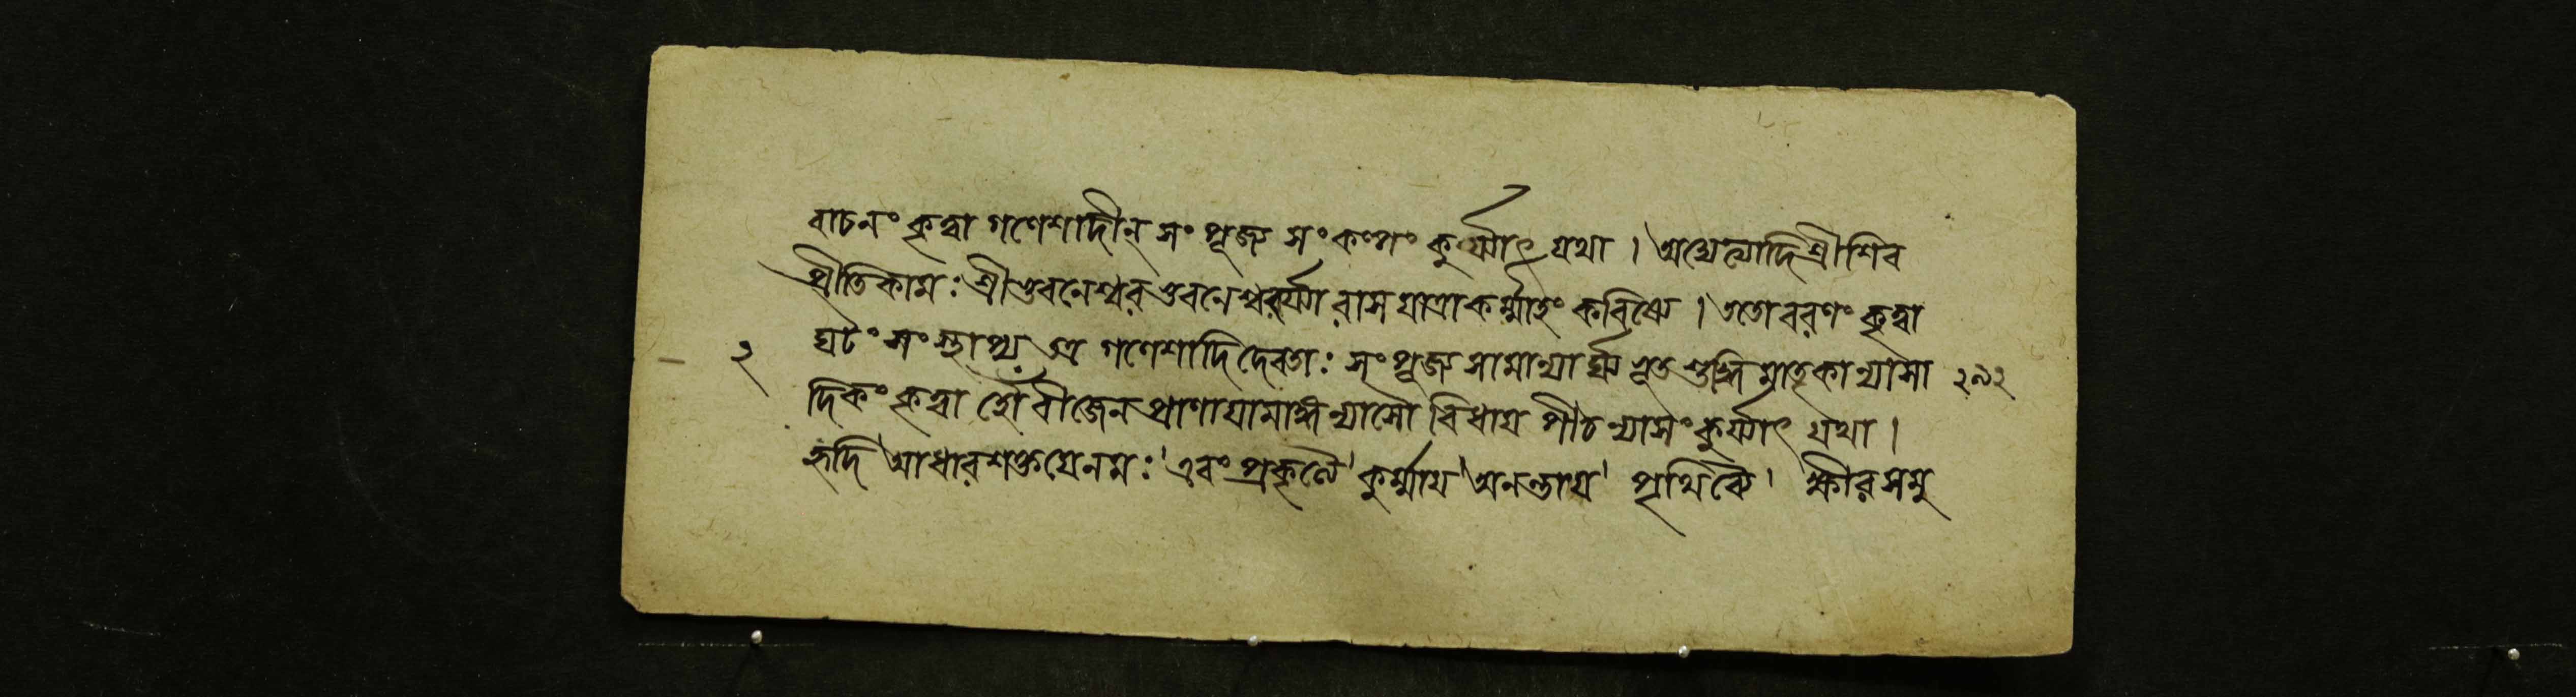 বাচনং কৃত্বা গণেশাদীন্ সংপূজ্য সংকল্পং কুর্য্যাৎ যথা । অদ্যেত্যাদি শ্রীশিব
প্রীতিকামঃ শ্রীভুবনেশ্বর ভুবনেশ্বর্য্যা রাসযাত্রাকর্ম্মাহং করিষ্যে । ততো বরণং কৃত্বা
২ ঘটং সংস্থাপ্য তত্র গণেশাদিদেবতাঃ সংপূজ্য সামান্যার্ঘ্য ভূতশুদ্ধি মাতৃকান্যাসা ২৯২
দিকং কৃত্বা বীজেন প্রাণায়ামাঙ্গন্যাসৌ বিধায় পীঠন্যাসং কুর্য্যাৎ যথা ।
হৃদি আধারশক্তয়ে নমঃ এবং প্রকৃত্যৈ কুর্ম্মায় অনন্তায় পৃথিব্যৈ ক্ষীরসমু